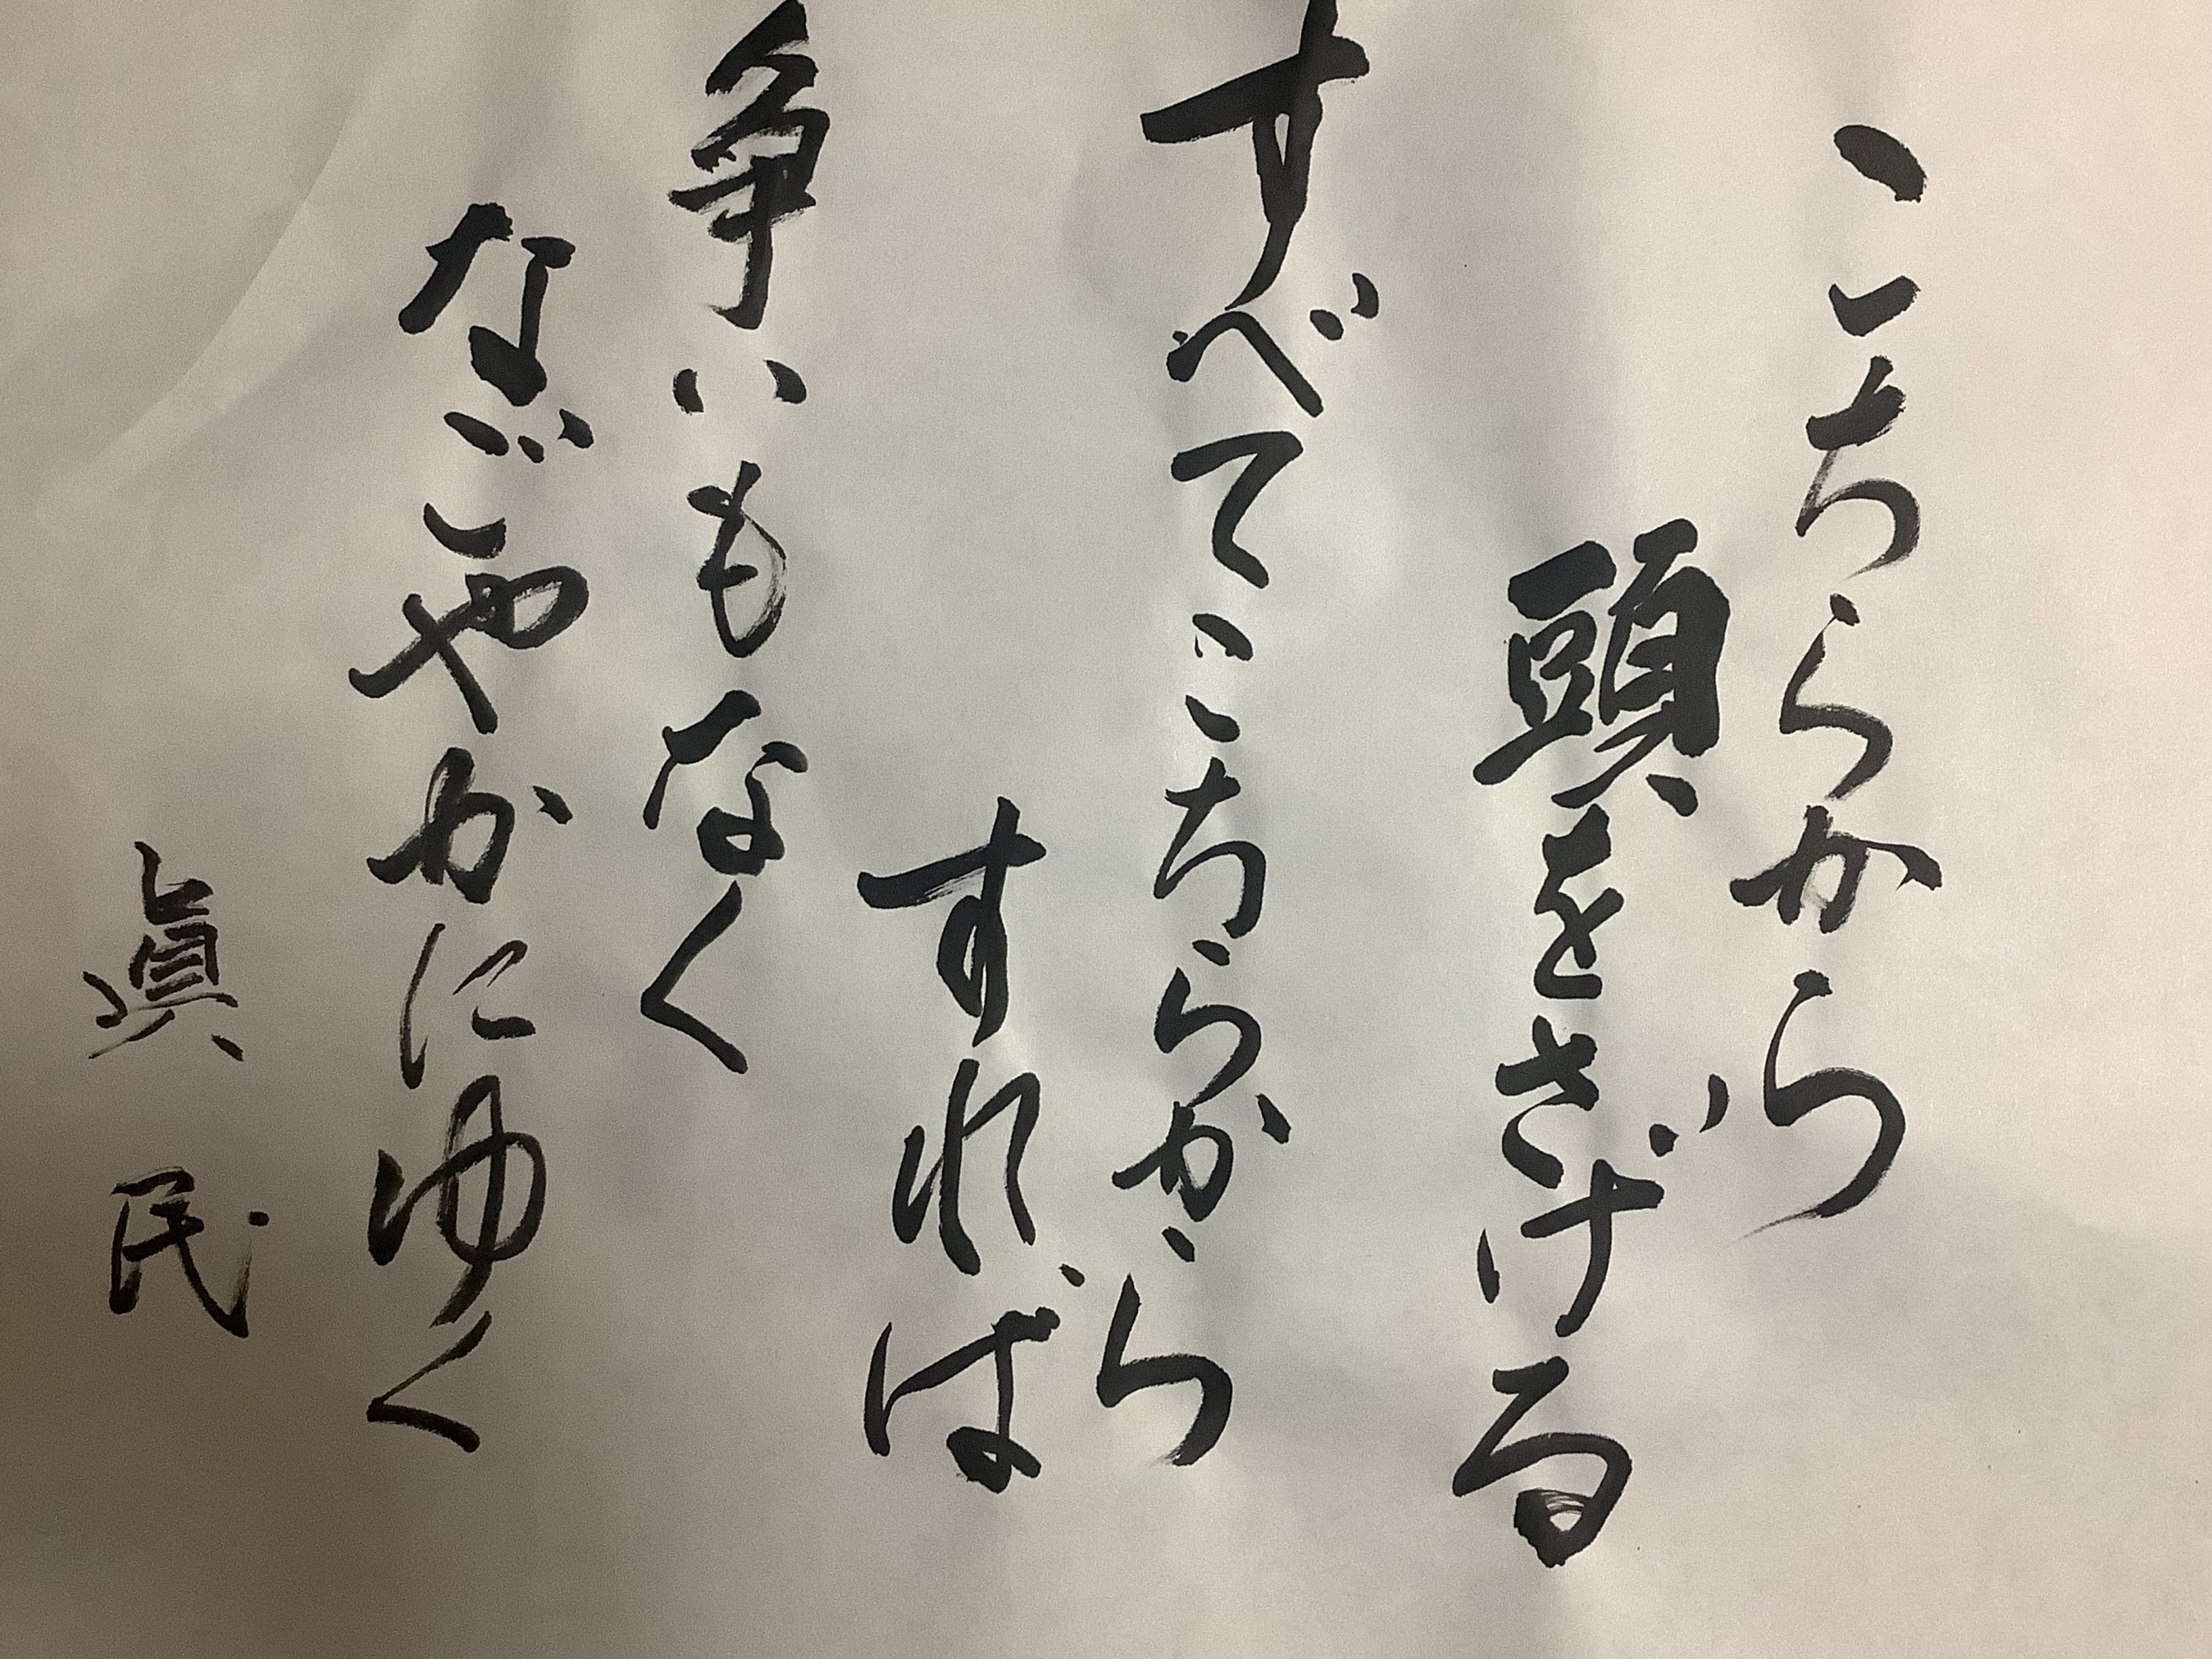 こちらから
頭をさげる
すべてこちらから
すれば
争いもなく
なごやかにゆく
眞民